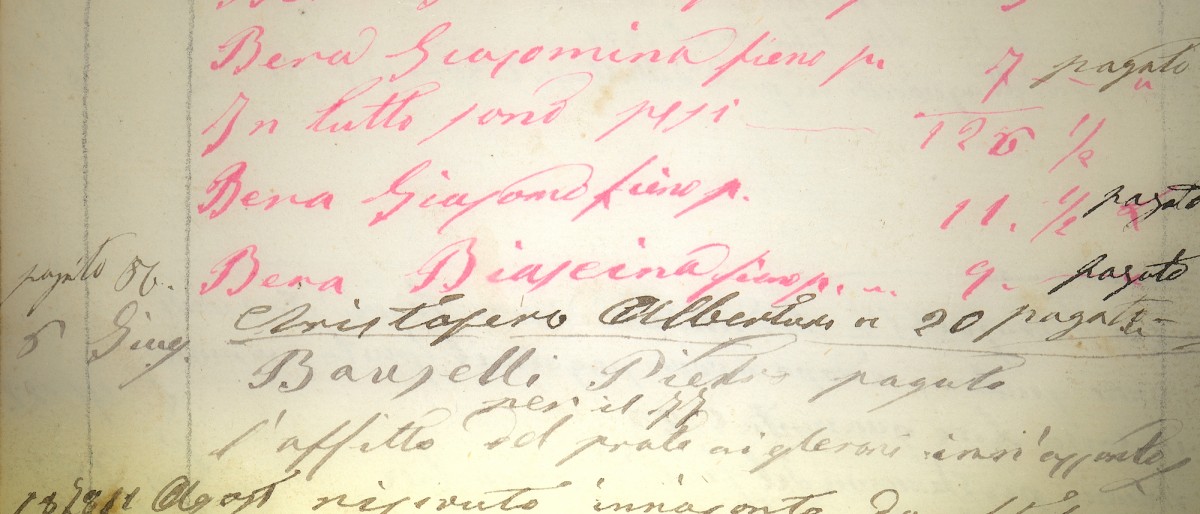 Bera Giacomina fieno p. 7 pagato
In tutto sono pesi 126 1/2
Bera Giacomo fieno p. 11. 1/2 pagato
pagato 86. Bera Biaseina fieno p. 9. pagato
6 Giug. Cristoforo Albertini 20 pagati
Bauselli Pietro pagato
per il 77
l'affitto del prato
Agost ricevuto